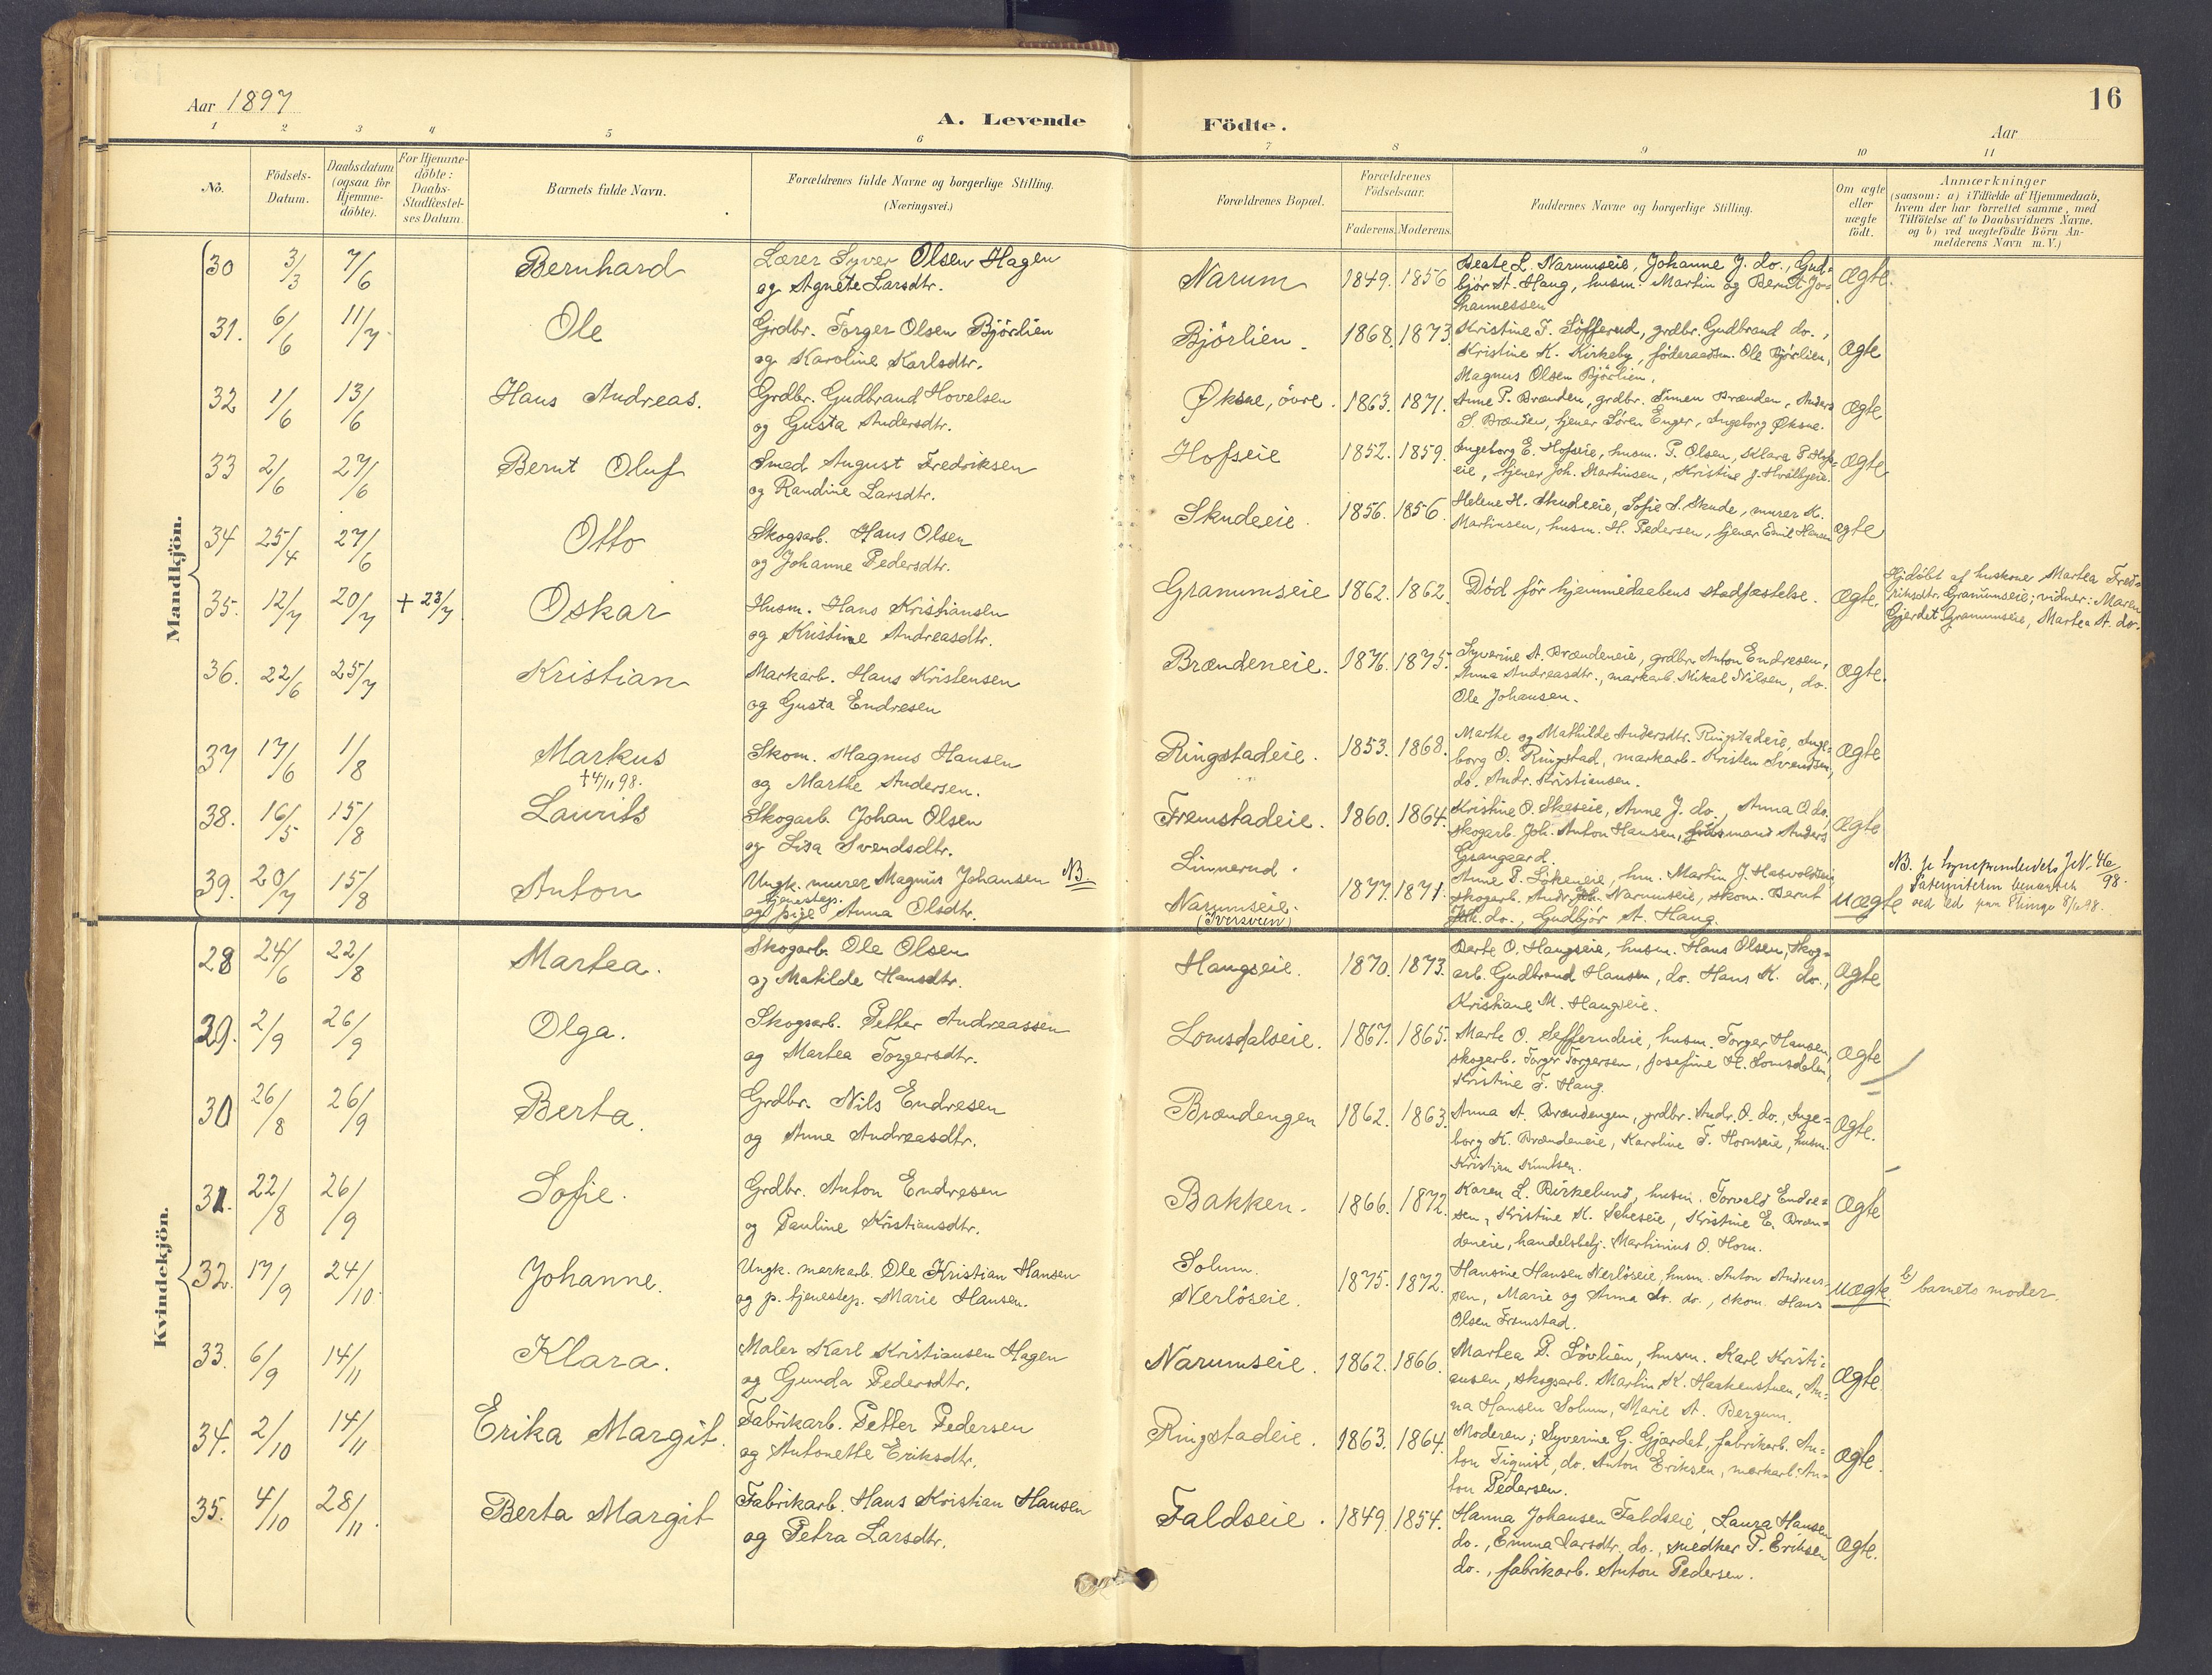 16
Aar 1897
A. Levende Födte.
Aar
1 2 3 4 5 6 7 8 9 10 11
No.
Födsels-
Datum.
Daabsdatum
(ogsaa for
Hjemme-
döbte).
For Hjemme-
döbte:
Daabs-
Stadfæstel-
ses Datum.
Barnets fulde Navn.
Forældrenes fulde Navne og borgerlige Stilling.
(Næringsvei.)
Forældrenes Bopæl.
Forældrenes
Födselsaar.
Faderens. Moderens.
Faddernes Navne og borgerlige Stilling.
Om ægte
eller
uægte
födt.
Anmærkninger
(saasom: a) i Tilfælde af Hjemmedaab,
hvem der har forrettet samme, med
Tilföielse af to Daabsvidners Navne,
og b) ved uægtefödte Börn An-
melderens Navn m. V.)
Mandkjön.
30 3/3 7/6 Bernhard
Lærer Syver Olsen Hagen
og Agnete Larsdtr.
Narum 1849. 1856
Beate L. Narumseie, Johanne J. do., Gud-
bjør A. Haug, husm. Martin og Bernt Jo-
hannessen
ægte.
31. 6/6 11/7 Ole
Grdbr. Torger Olsen Bjørlien
og Karoline Karlsdtr.
Bjørlien. 1868. 1873.
Kristine T. Søfferud, grdbr. Gudbrand do.,
Kristine K. Kirkeby, föderaadsm. Ole Bjørlien,
Magnus Olsen Bjørlien.
ægte
32 1/6 13/6 Hans Andreas.
Grdbr. Gudbrand Hovelsen
og Gusta Andersdtr.
Øksne, övre. 1863. 1871.
Anne P. Brænden, grdbr. Simen Brænden, Anders
S. Brænden, tjener Søren Enger, Ingeborg Øksne.
ægte
33 2/6 27/6 Bernt Oluf
Smed August Fredriksen
og Randine Larsdtr.
Hofseie 1852. 1859.
Ingeborg E. Hofseie, husm. P. Olsen, Klara P. Hofs-
eie, tjener Joh. Martinsen, Kristine J. Hvalbyeie.
ægte
34 25/4 27/6 Otto
Skogsarb. Hans Olsen
og Johanne Pedersdtr.
Skudeeie. 1856. 1856.
Helene H. Skudeeie, Sofie S. Skude, murer K.
Martinsen, husm. H. Pedersen, tjener Emil Hansen
ægte
35. 12/7 20/7 + 23/7 Oskar
Husm. Hans Kristiansen
og Kristine Andreasdtr.
Granumseie 1862. 1862.
Död för hjemmedaabens stadfæstelse.
ægte.
Hjdöbt af huskone Martea Fred-
riksdtr. Granumseie; vidner: Maren
Gjerdet Granumseie, Martea A. do.
36. 22/6 25/7 Kristian
Markarb. Hans Kristensen
og Gusta Endresen
Brændeneie. 1876. 1875.
Syverine A. Brændeneie, grdbr. Anton Endresen,
Anna Andreasdtr., markarb. Mikal Nilsen, do.
Ole Johansen.
ægte.
37 17/6 1/8 Markus
† 4/11 98.
Skom. Magnus Hansen
og Marthe Andersen.
Ringstadeie. 1853. 1868.
Marthe og Mathilde Andersdtr. Ringstadeie, Inge-
borg O. Ringstad, markarb. Kristen Svendsen,
do. Andr. Kristiansen.
ægte
38. 16/5 15/8 Laurits
Skogarb. Johan Olsen
og Lisa Svendsdtr.
Fremstadeie. 1860. 1864.
Kristine O. Skeseie, Anne J. do., Anna O. do,
skogarb. Joh. Anton Hansen, Anders
Grangaard.
ægte
39. 20/7 15/8 Anton
Ungk. murer Magnus Johansen NB.
og tjenestep. pige Anna Olsdtr.
Linnerud.
Narumseie.
(Iversveen)
1877. 1871.
Anne P. Lökeneie, hm. Martin J. Hasvoldseie
skogarb. Andr. Joh. Narumseie, skom. Bernt
Joh. do., Gudbjør A. Haug.
uægte
NB. JN. 46/98.
8/6 98.
Kvindekjön.
28 24/6 22/8 Martea.
Skogarb. Ole Olsen
og Matilde Hansdtr.
Haugseie. 1870. 1873.
Berte O. Haugseie, husm. Hans Olsen, skog-
arb. Gudbrand Hansen, do. Hans K. do.,
Kristiane M. Haugseie.
ægte
29. 2/9 26/9 Olga.
Skogsarb. Petter Andreassen
og Martea Torgersdtr.
Lomsdalseie. 1867. 1865.
Marte O. Sefferudeie, husm. Torger Hansen,
skogarb. Torger Torgersen, Josefine H. Lomsdalen,
Kristine T. Haug.
ægte
30 26/8 26/9 Berta.
Grdbr. Nils Endresen
og Anne Andreasdtr.
Brændengen 1862. 1863.
Anna A. Brændengen, grdbr. Andr. O. do., Inge-
borg K. Brændeneie, Karoline T. Hornseie, husm.
Kristian Knutsen.
ægte.
31. 22/8 26/9 Sofie.
Grdbr. Anton Endresen
og Pauline Kristiansdtr.
Bakken. 1866. 1872.
Karen L. Birkelund, husm. Torvald Endre-
sen, Kristine K. Skeseie, Kristine E. Bræn-
deneie, handelsbetj. Martinius O. Horn.
ægte
32. 17/9 24/10. Johanne.
Ungk. markarb. Ole Kristian Hansen
og p. tjenestep. Marie Hansen.
Solum.
Nerlöseie.
1875. 1872.
Hansine Hansen Nerlöseie, husm. Anton Andreas-
sen, Marie og Anna do. do., skom. Hans
Olsen Fremstad.
uægte
b) barnets moder.
33. 6/9 14/11 Klara.
Maler Karl Kristiansen Hagen
og Gunda Pedersdtr.
Narumseie. 1862. 1866.
Martea P. Lövlien, husm. Karl Kristi-
ansen, skogsarb. Martin K. Haakenstuen, An-
na Hansen Solum, Marie A. Bergum.
ægte.
34. 2/10 14/11 Erika Margit.
Fabrikarb. Petter Pedersen
og Antonette Eriksdtr.
Ringstadeie. 1863. 1864.
Moderen; Syverine G. Gjærdet, fabrikarb. An-
ton Tiquist, do. Anton Eriksen, markarb. An-
ton Pedersen.
ægte.
35. 4/10 28/11. Berta Margit
Fabrikarb. Hans Kristian Hansen
og Petra Larsdtr.
Faldseie. 1849. 1854.
Hanna Johansen Faldseie, Laura Hansen
do., Emma Larsdtr. do., snedker P. Eriksen
do., fabrikarb. Anton Pedersen.
ægte.